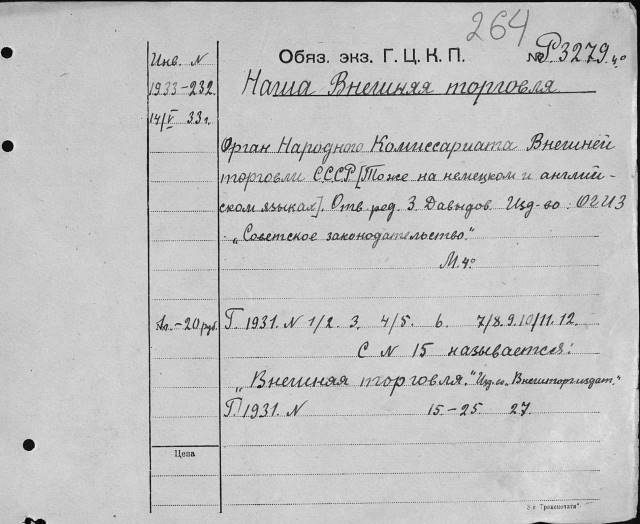 264
Инв. N
Обяз. экз. Г. Ц. К. П.
№ Р3279 4°
1933-232
Наша Внешняя торговля
14/V 33 г.
Орган Народного Комиссариата Внешней
торговли СССР [Тоже на немецком и англий-
ском языках]. Отв. ред. З Давыдов. Изд-во: ОГИЗ
„Советское законодательство."
М. 4°
-20 руб.
Г. 1931. N 1/2. 3. 4/5. 6. 7/8. 9. 10/11. 12.
С N 15 называется:
„Внешняя торговля." Изд-во „Внешторгиздат."
Г. 1931. N 15-25 27.
Цена